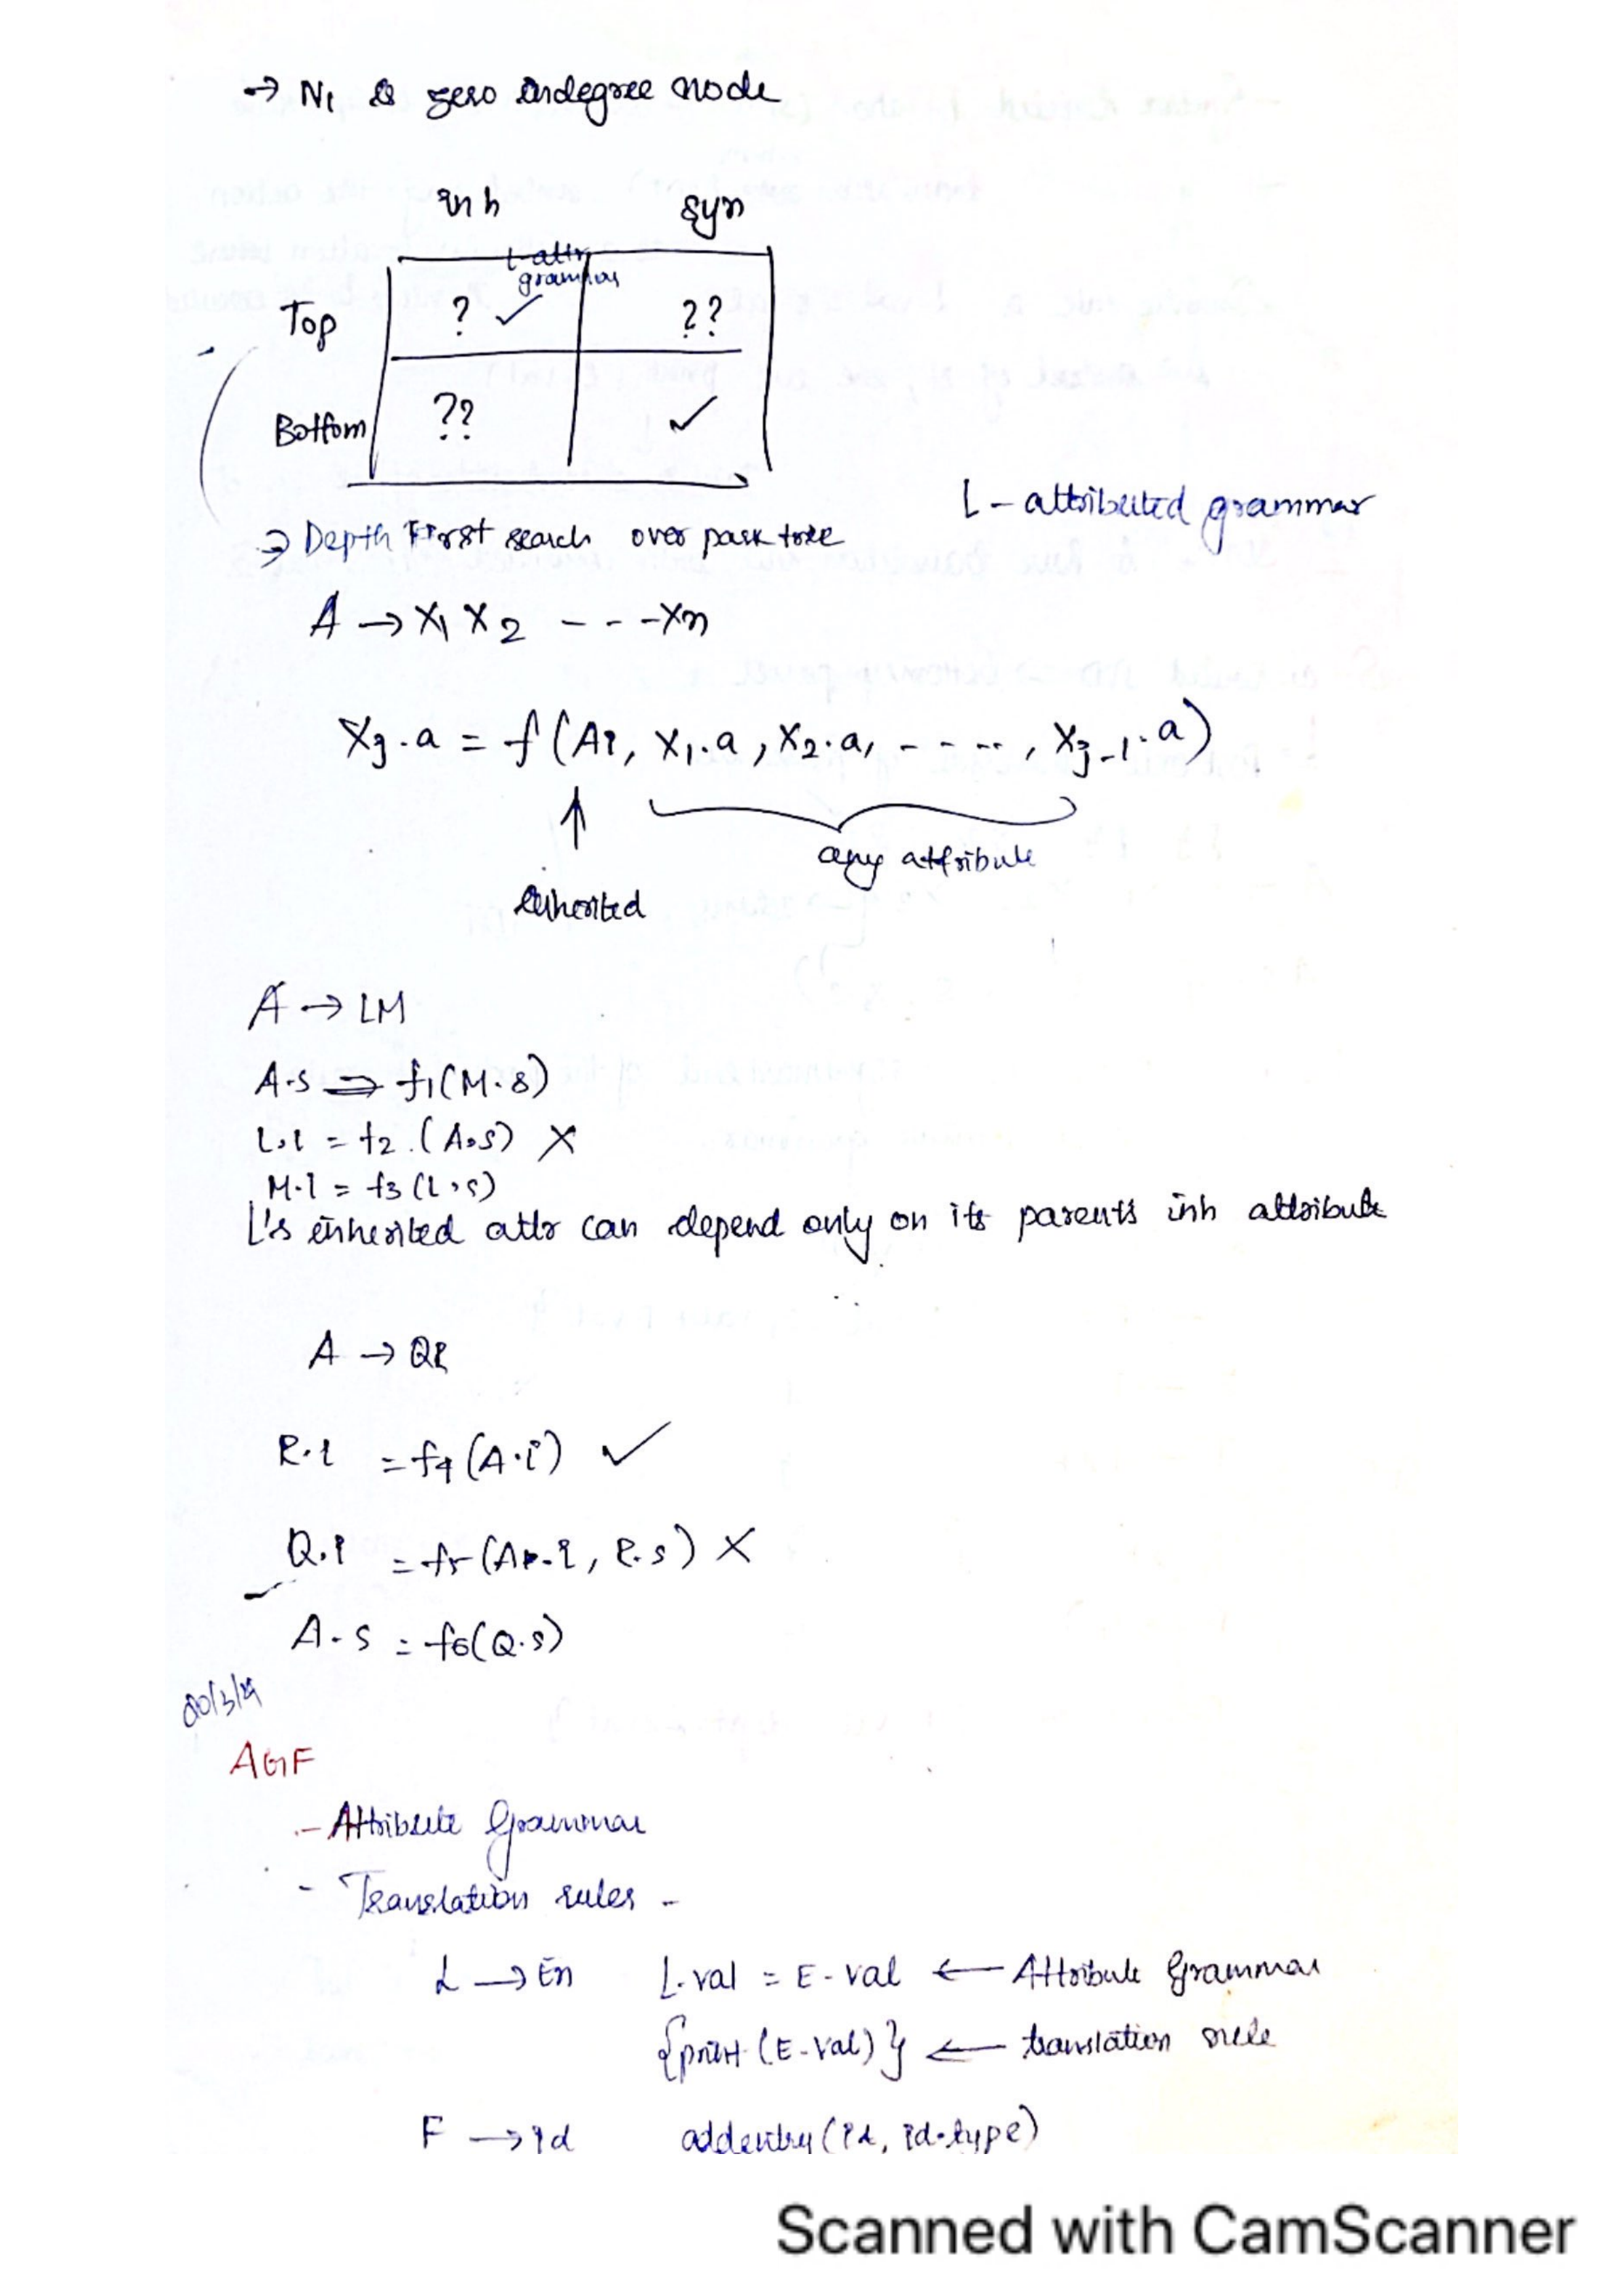 → N1 is zero indegree node
inh syn
L-attr
grammar
Top ? ✓ ??
Bottom ?? ✓
L - attributed grammar
⇒ Depth First search over parse tree
A → X1 X2 - - - - Xn
Xj.a = f(Ai, X1.a, X2.a, - - - - -, Xj-1.a)
↑
any attribute
inherited
A → LM
A.s ⇒ f1(M.s)
L.i = f2.(A.s) ✗
M.i = f3(L.s)
L's inherited attr can depend only on its parents inh attribute
A → QR
R.i = f4(A.i) ✓
Q.i = f5(A.i, R.s) ✗
A.s = f6(Q.s)
AGF
- Attribute Grammar
- Translation rules -
L → En L.val = E-val ← Attribute Grammar
{print (E-val)} ← translation rule
F → id addentry(id, id.type)
Scanned with CamScanner